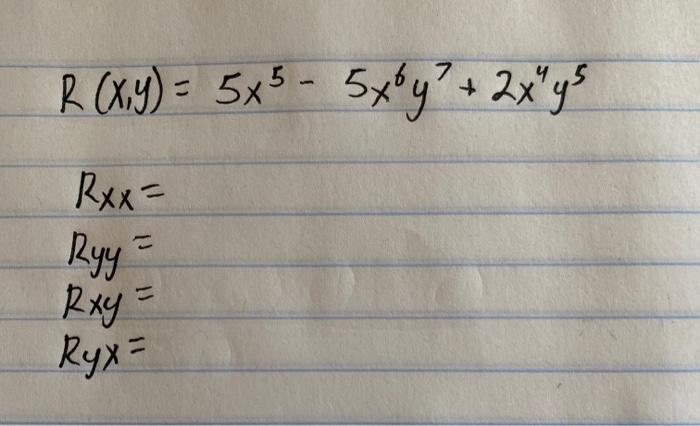 R(x,y) = 5x⁵ - 5x⁶y⁷ + 2x⁴y⁵
Rxx =
Ryy =
Rxy =
Ryx =